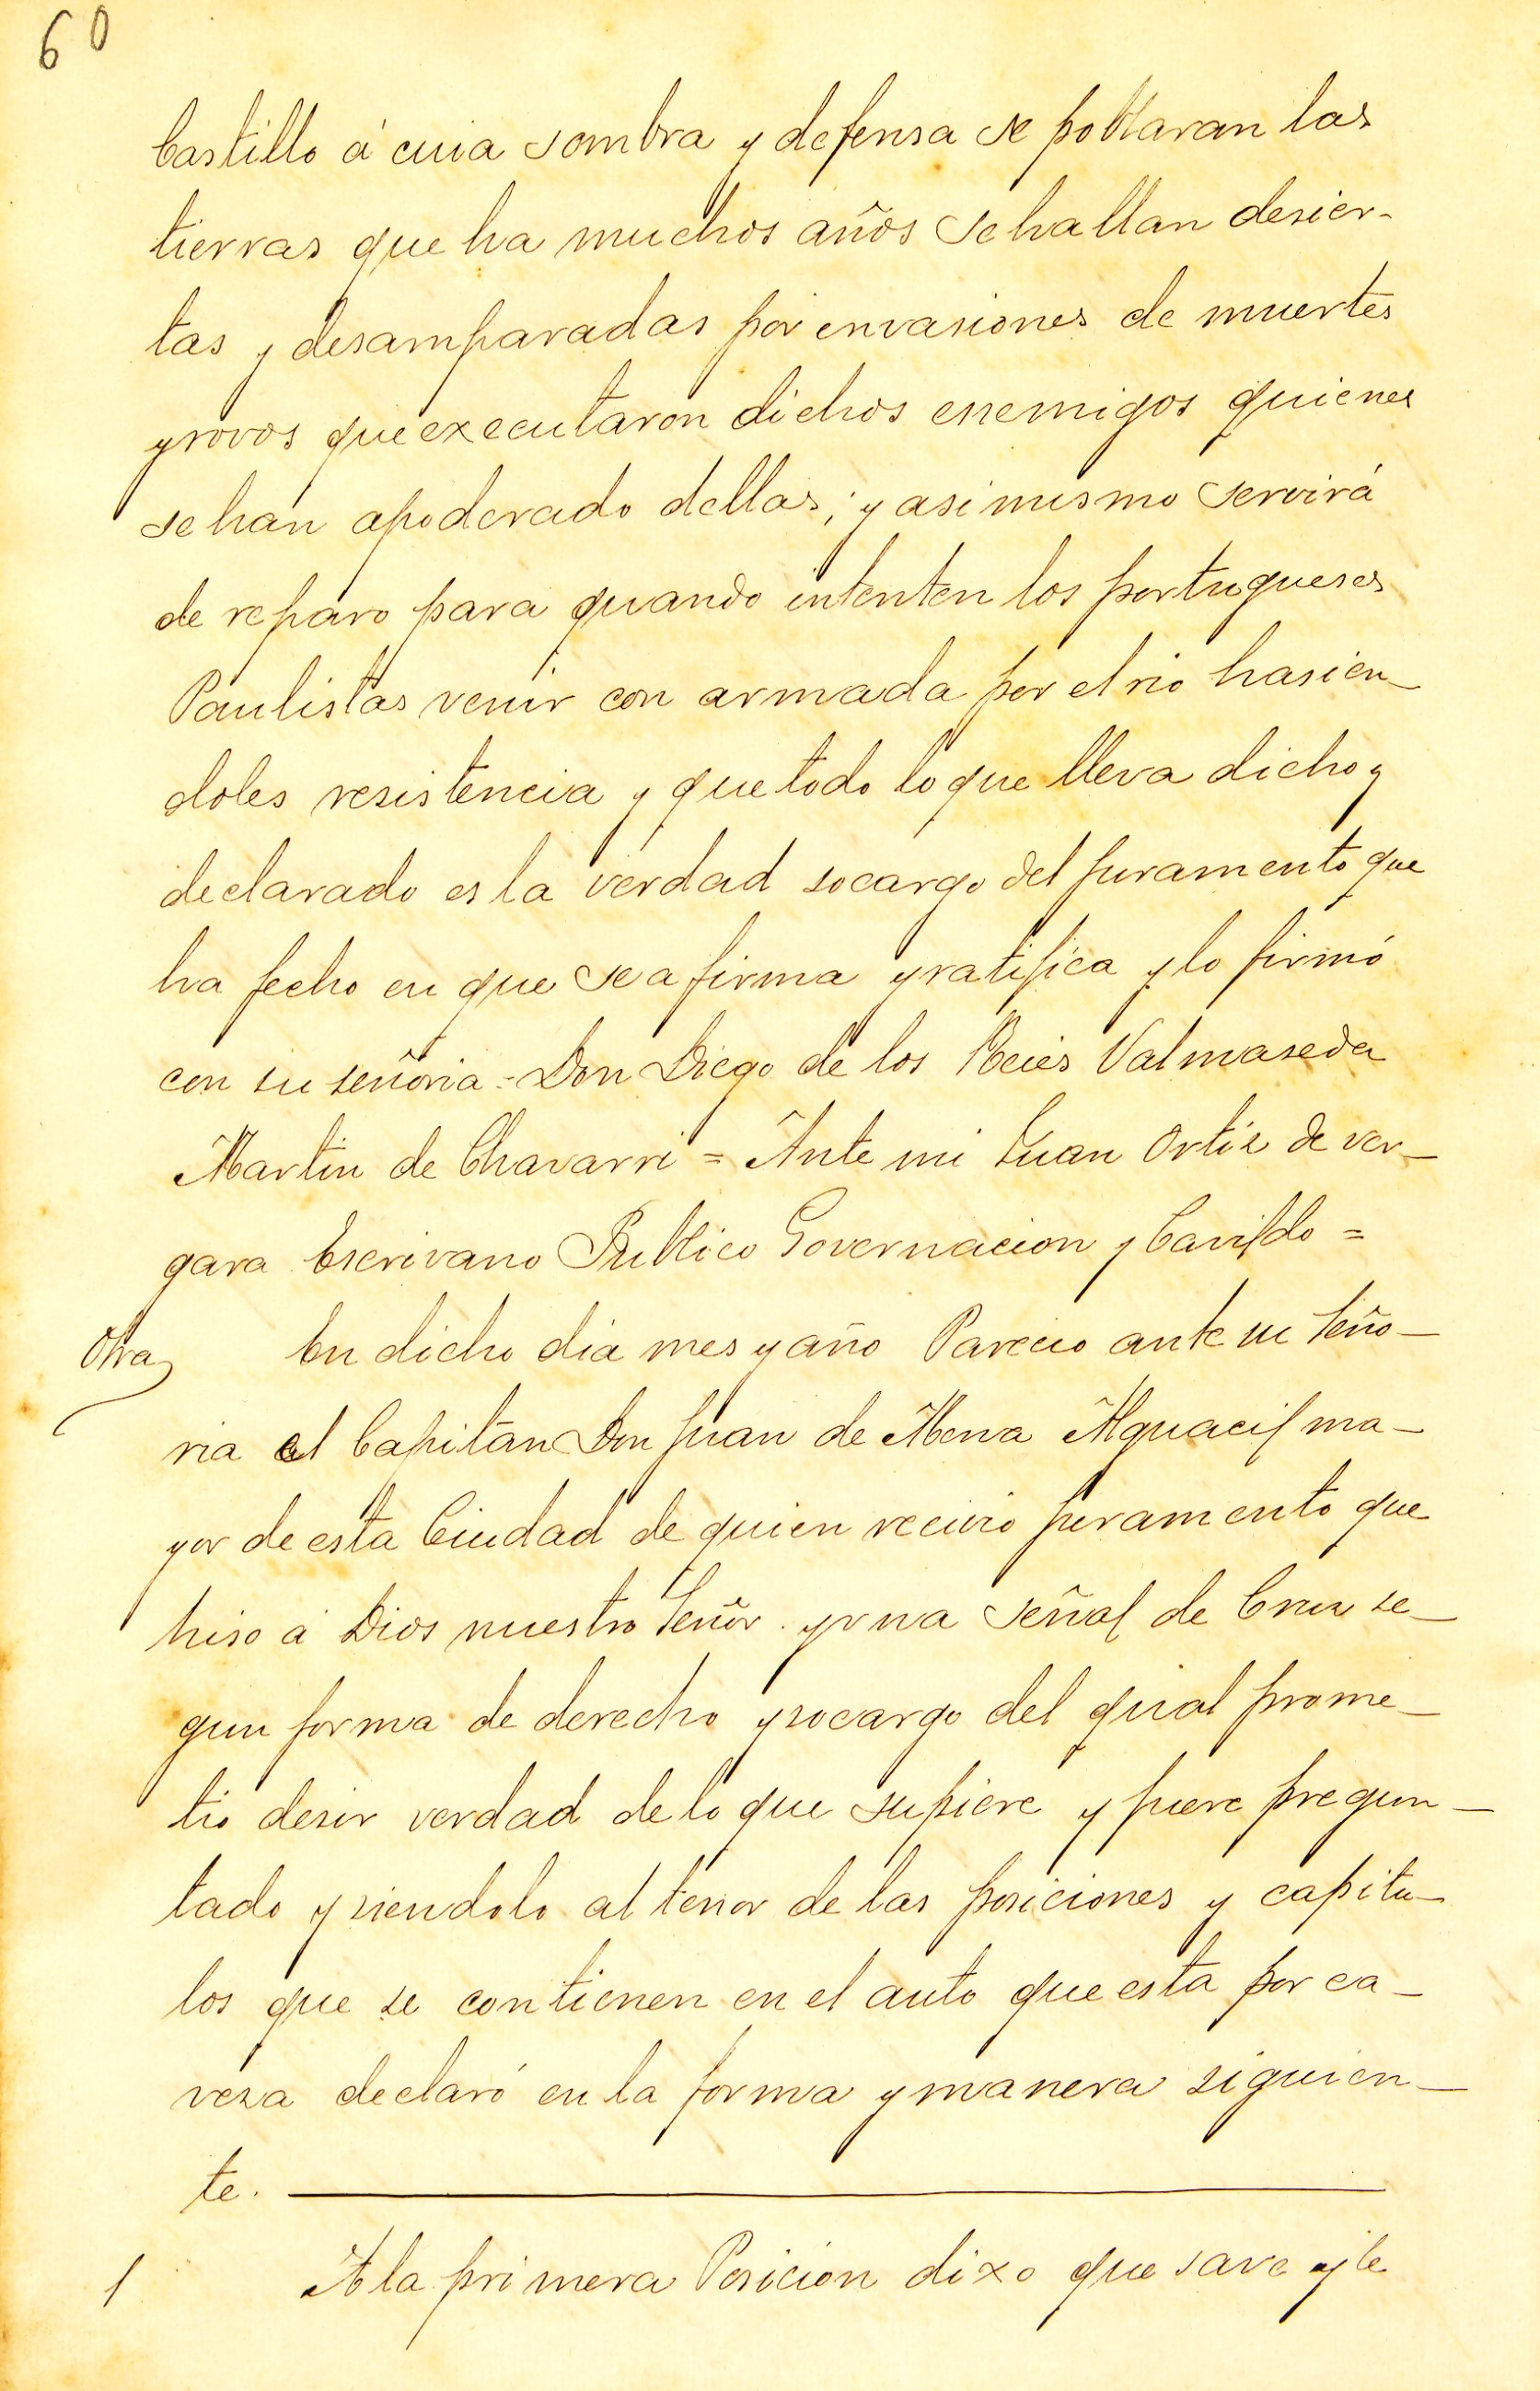 60
Castillo á cuia sombra y defensa se poblaran las
tierras que ha muchos años se hallan desier-
tas y desamparadas por envasiones de muertes
y rovos que executaron dichos enemigos quienes
se han apoderado dellas; y asimismo servirá
de reparo para quando intenten los portugueses
Paulistas venir con armada por el rio hasien-
doles resistencia y que todo lo que lleva dicho y
declarado es la verdad socargo del juramento que
ha fecho en que se afirma y ratifica y lo firmó
con su señoria - Don Diego de los Reies Valmaseda
Martin de Chavarri = Ante mi Juan Ortiz de ver-
gara Escrivano Publico Governacion y Cavildo =
Otra En dicho dia mes y año Parecio ante su Seño-
ria el Capitan Don Juan de Mena Alguacil ma-
yor de esta Ciudad de quien recivio juramento que
hiso á Dios nuestro Señor y vna señal de Cruz se-
gun forma de derecho y socargo del qual prome-
tio desir verdad de lo que supiere y fuere pregun-
tado y siendolo al tenor de las posiciones y capitu-
los que se contienen en el auto que esta por ca-
vesa declaró en la forma y manera siguien-
te.
1 A la primera Posicion dixo que save y le